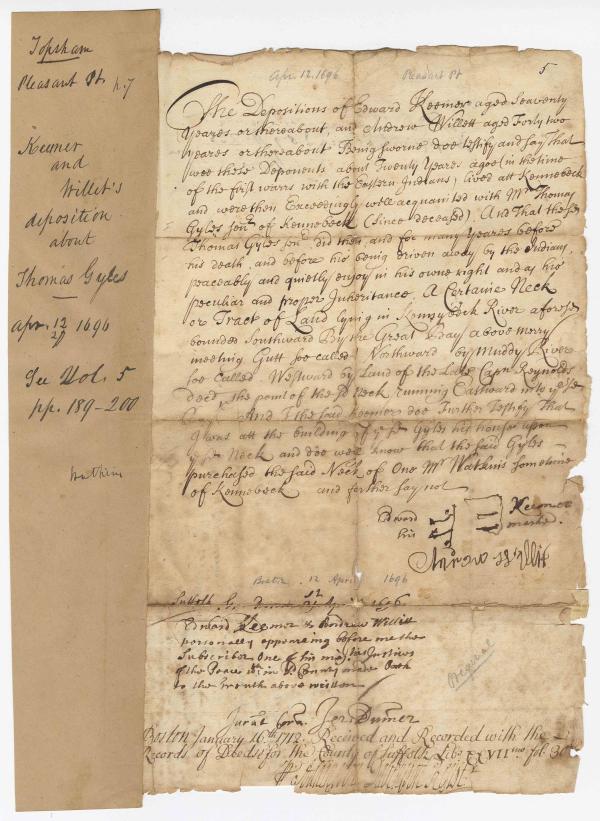 Topsham
Pleasant Pt. p.7
Keemer
and
Willet's
deposition
about
Thomas Gyles
Apr. 12 1696
21
See Vol. 5
pp. 189-200
Watkins
Apr. 12. 1696 Pleasant Pt 5
The Depositions of Edward Keemer aged Seaventy
yeares or thereabout, and Andrew Willett aged Forty two
yeares or thereabout Being sworne doe testify and say that
wee these Deponents about Twenty Yeares agoe (in the time
of the first warrs with the Eastern Indians) lived att Kennebeck
and were then Exceedingly well acquainted with Mr Thomas
Gyles Senr. of Kennebeck (Since deceased). And That the sd
Thomas Gyles Senr. did then, and for many yeares before
his death, and before his being driven away by the Indians,
peaceably and quietly enjoy in his owne right and as his
peculiar and propper Inheritance, A Certaine Neck
or Tract of Land lying in Kennebeck River aforesd
bounded Southward By the Great Bay above merry
meeting Gutt soe called Northward by Muddy River
soe called Westward by Land of the Late Capn. Reynolds
decd, the point of the sd Neck running Eastward into ye sd
And I the said Keemer doe Further Testify That
I was att the building of ye sd Gyles his house upon
ye sd Neck and doe well know that the said Gyles
purchased the said Neck of One Mr Watkins sometime
of Kennebeck and further say not
Edward Keemer
his marke.
Andrew Willit
Boston 12 April 1696
Suffolk Ss. 1696
Edward Keemer & Andrew Willitt
personally appearing before me the
Subscriber One of his majties Justices
of the Peace in sd County made Oath
to the truth above written
Original
Jurat Cora. Jer: Dumer
Boston January 16th 1712. Received and Recorded with the
Records of Deeds for the County of Suffolk Lib. XXVIImo. fol: 30